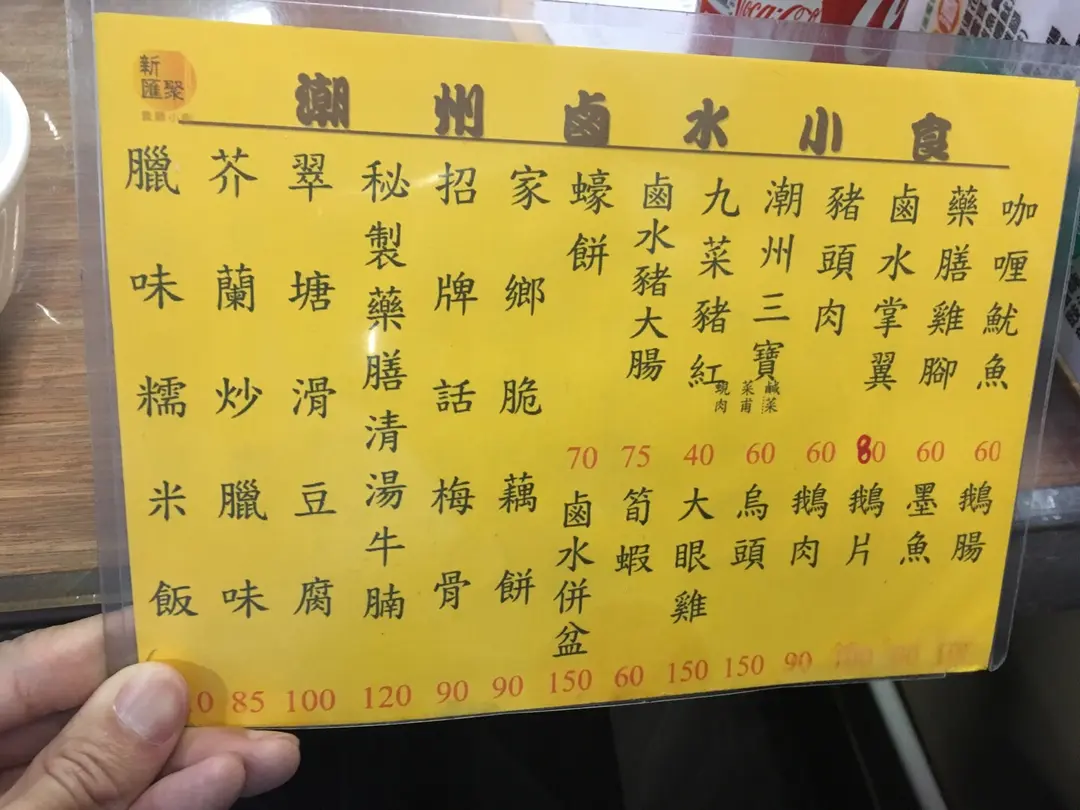 新
匯聚
潮州鹵水小食
咖喱魷魚
60
藥膳雞腳
60
鹵水掌翼
80
豬頭肉
60
潮州三寶
鹹菜
菜甫
蜆肉
60
九菜豬紅
40
鹵水豬大腸
75
蠔餅
70
鵝腸
墨魚
鵝片
鵝肉
90
烏頭
150
大眼雞
150
筍蝦
60
鹵水併盆
150
家鄉脆藕餅
90
招牌話梅骨
90
秘製藥膳清湯牛腩
120
翠塘滑豆腐
100
芥蘭炒臘味
85
臘味糯米飯
Coca-Cola